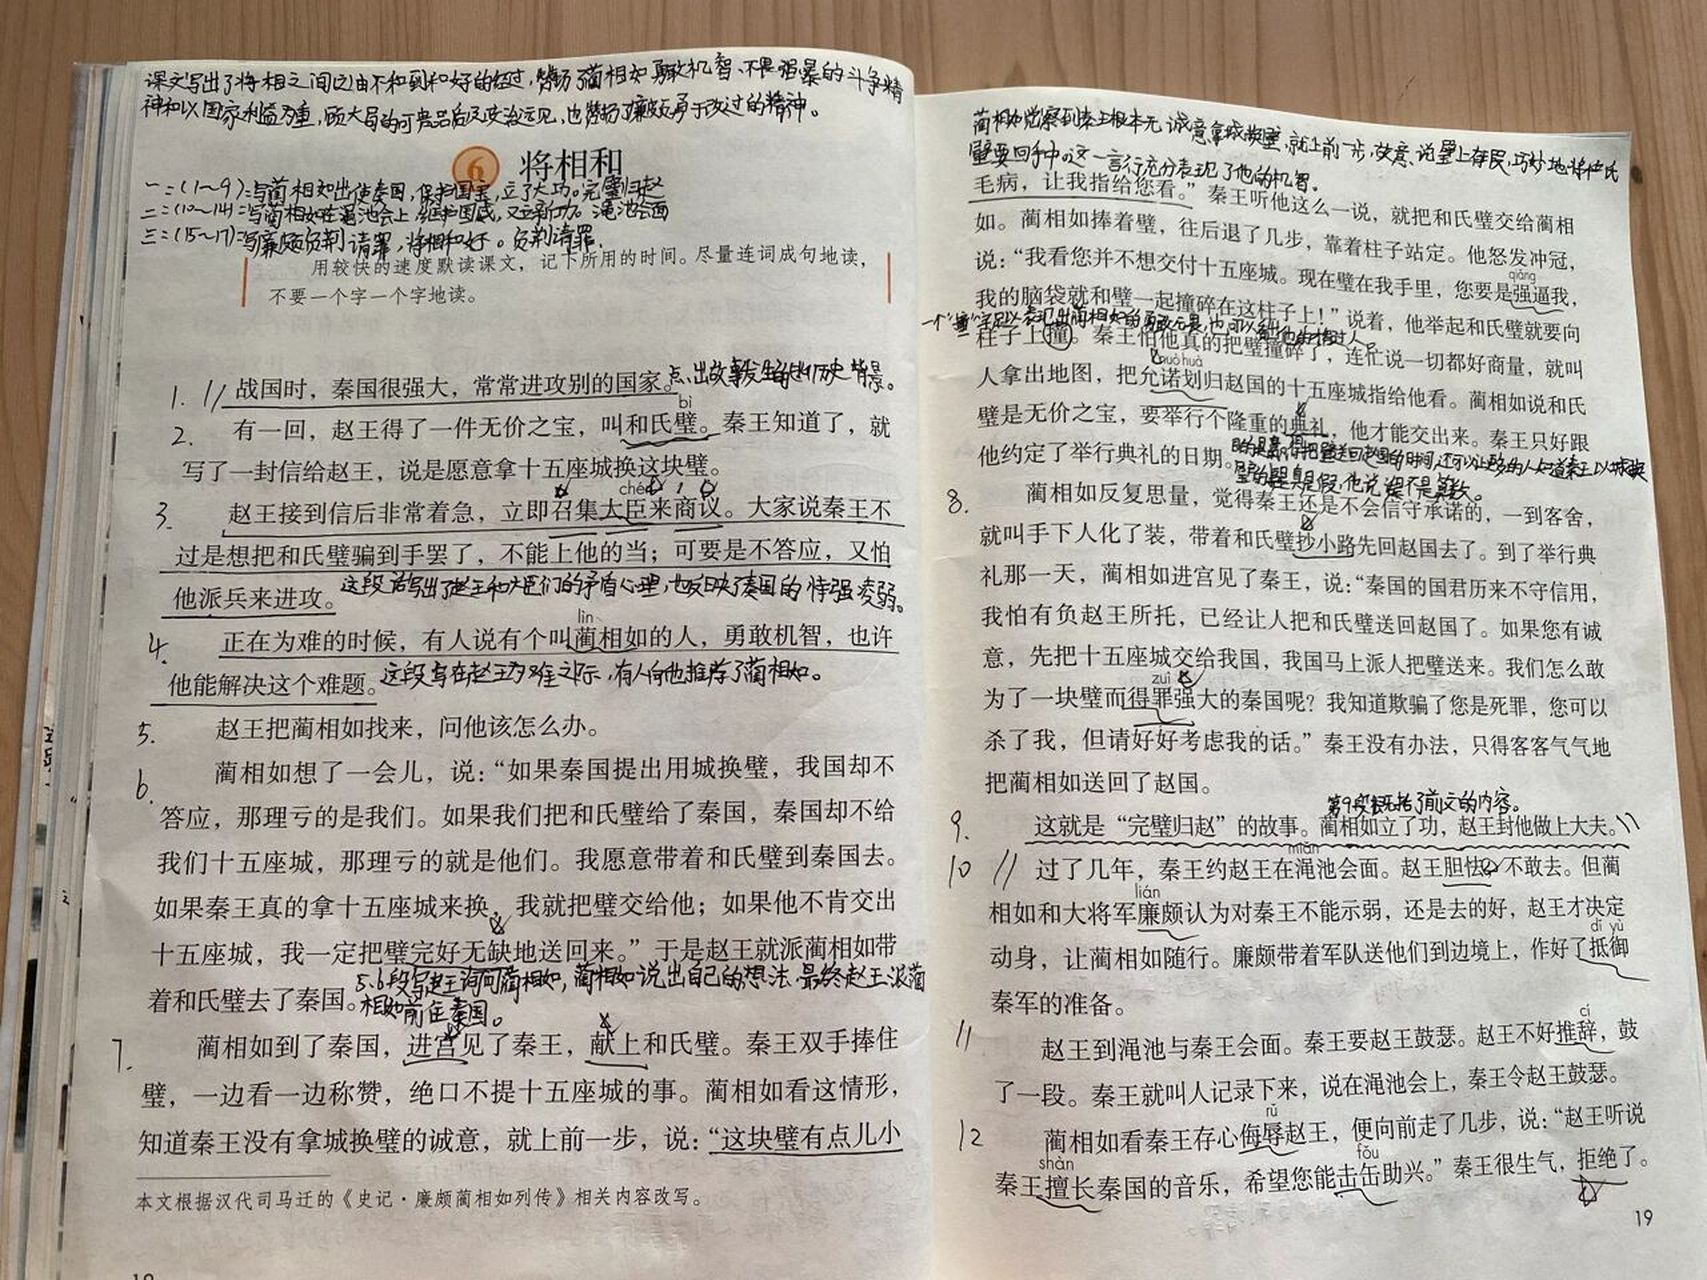 课文写出了将相之间由不和到和好的经过,赞扬了蔺相如勇敢机智、不畏强暴的斗争精
神和以国家利益为重,顾大局的可贵品质及政治远见,也赞扬了廉颇勇于改过的精神。
6 将相和
一:(1~9):写蔺相如出使秦国,保护国宝,立了大功。完璧归赵
二:(10~14):写蔺相如在渑池会上,维护国威,又立新功。渑池会面
三:(15~17):写廉颇负荆请罪,将相和好。负荆请罪.
用较快的速度默读课文,记下所用的时间。尽量连词成句地读,
不要一个字一个字地读。
1. // 战国时,秦国很强大,常常进攻别的国家。点出故事发生的历史背景。
bì
2. 有一回,赵王得了一件无价之宝,叫和氏璧。秦王知道了,就
写了一封信给赵王,说是愿意拿十五座城换这块璧。
chén
3. 赵王接到信后非常着急,立即召集大臣来商议。大家说秦王不
过是想把和氏璧骗到手罢了,不能上他的当;可要是不答应,又怕
他派兵来进攻。这段话写出了赵王和大臣们的矛盾心理,也反映了秦国的恃强凌弱。
lìn
4. 正在为难的时候,有人说有个叫蔺相如的人,勇敢机智,也许
他能解决这个难题。这段写在赵王为难之际,有人向他推荐了蔺相如。
5. 赵王把蔺相如找来,问他该怎么办。
6. 蔺相如想了一会儿,说:“如果秦国提出用城换璧,我国却不
答应,那理亏的是我们。如果我们把和氏璧给了秦国,秦国却不给
我们十五座城,那理亏的就是他们。我愿意带着和氏璧到秦国去。
如果秦王真的拿十五座城来换,我就把璧交给他;如果他不肯交出
十五座城,我一定把璧完好无缺地送回来。”于是赵王就派蔺相如带
着和氏璧去了秦国。5、6段写赵王询问蔺相如,蔺相如说出自己的想法,最终赵王派蔺
相如前往秦国。
7. 蔺相如到了秦国,进宫见了秦王,献上和氏璧。秦王双手捧住
璧,一边看一边称赞,绝口不提十五座城的事。蔺相如看这情形,
知道秦王没有拿城换璧的诚意,就上前一步,说:“这块璧有点儿小
本文根据汉代司马迁的《史记·廉颇蔺相如列传》相关内容改写。
蔺相如觉察到秦王根本无诚意拿城换璧,就上前一步,故意说璧上有瑕,巧妙地将和氏
璧要回手中。这一言行充分表现了他的机智。
毛病,让我指给您看。”秦王听他这么一说,就把和氏璧交给蔺相
如。蔺相如捧着璧,往后退了几步,靠着柱子站定。他怒发冲冠,
qiǎng
说:“我看您并不想交付十五座城。现在璧在我手里,您要是强逼我,
我的脑袋就和璧一起撞碎在这柱子上!”说着,他举起和氏璧就要向
一个“撞”字足以表现出蔺相如的勇敢无畏,也可以
柱子上撞。秦王怕他真的把璧撞碎了,连忙说一切都好商量,就叫
nuò huà
人拿出地图,把允诺划归赵国的十五座城指给他看。蔺相如说和氏
璧是无价之宝,要举行个隆重的典礼,他才能交出来。秦王只好跟
他约定了举行典礼的日期。
8. 蔺相如反复思量,觉得秦王还是不会信守承诺的,一到客舍,
就叫手下人化了装,带着和氏璧抄小路先回赵国去了。到了举行典
礼那一天,蔺相如进宫见了秦王,说:“秦国的国君历来不守信用,
我怕有负赵王所托,已经让人把和氏璧送回赵国了。如果您有诚
意,先把十五座城交给我国,我国马上派人把璧送来。我们怎么敢
zuì
为了一块璧而得罪强大的秦国呢?我知道欺骗了您是死罪,您可以
杀了我,但请好好考虑我的话。”秦王没有办法,只得客客气气地
把蔺相如送回了赵国。
第9段概括了前文的内容。
9. 这就是“完璧归赵”的故事。蔺相如立了功,赵王封他做上大夫。\\
miǎn
10 // 过了几年,秦王约赵王在渑池会面。赵王胆怯,不敢去。但蔺
lián
相如和大将军廉颇认为对秦王不能示弱,还是去的好,赵王才决定
dǐ yù
动身,让蔺相如随行。廉颇带着军队送他们到边境上,作好了抵御
秦军的准备。
cí
11 赵王到渑池与秦王会面。秦王要赵王鼓瑟。赵王不好推辞,鼓
了一段。秦王就叫人记录下来,说在渑池会上,秦王令赵王鼓瑟。
rǔ
12 蔺相如看秦王存心侮辱赵王,便向前走了几步,说:“赵王听说
shàn fǒu
秦王擅长秦国的音乐,希望您能击缶助兴。”秦王很生气,拒绝了。
19